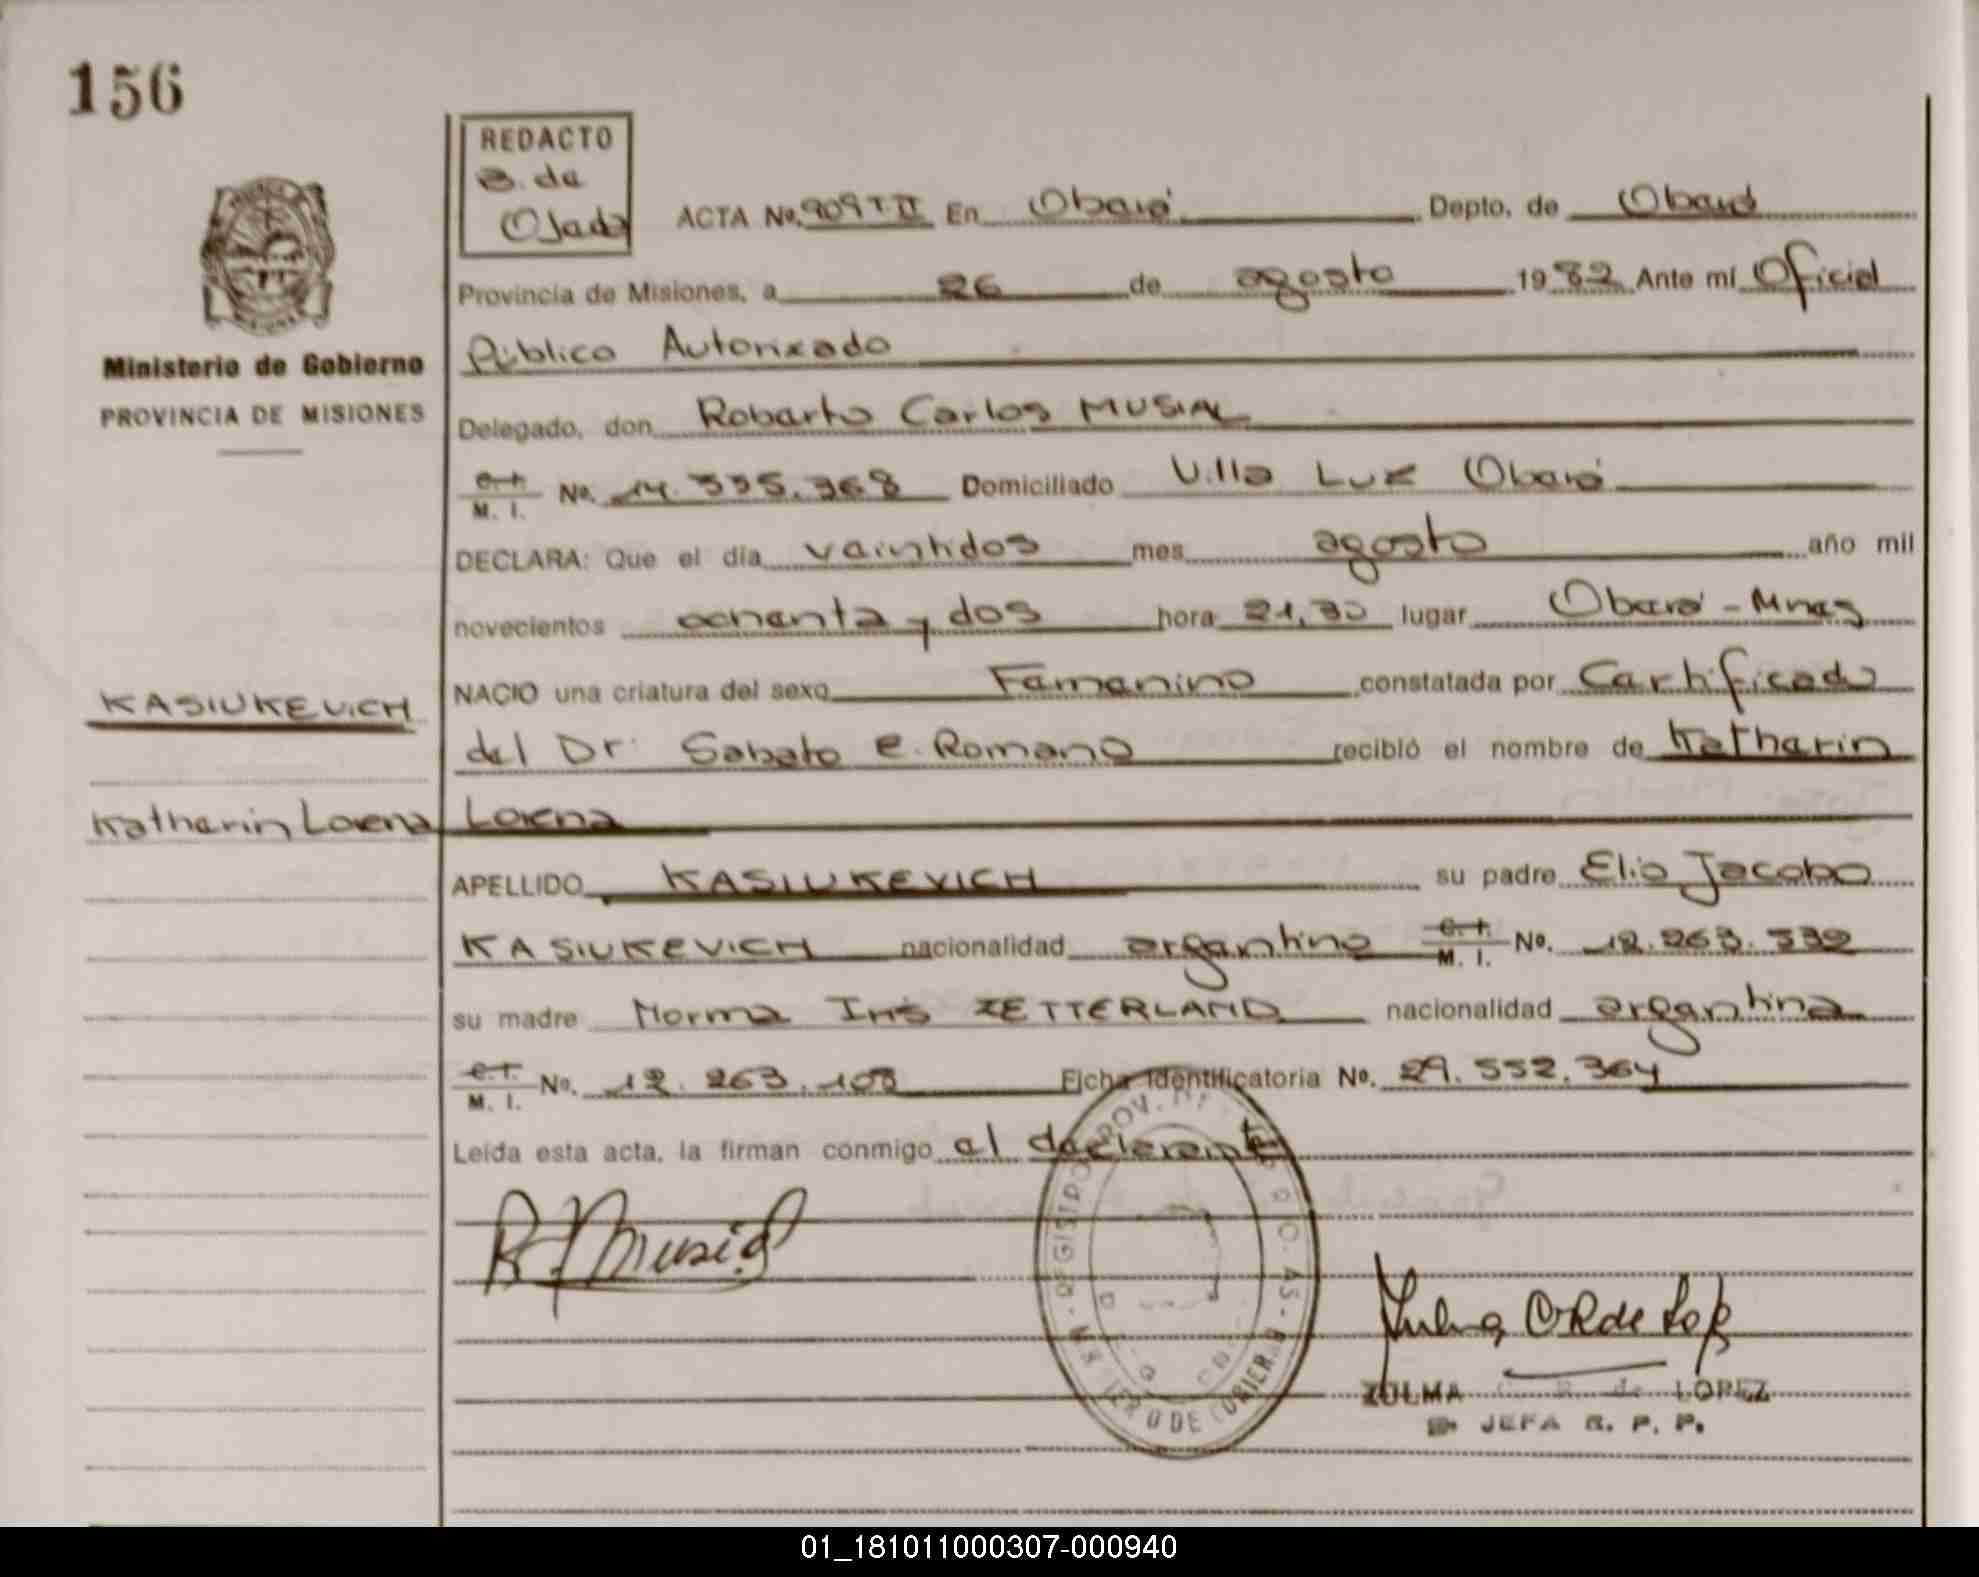 156
REDACTO
B. de
Ojeda
ACTA No. 909 T II En Oberá Depto. de Oberá
Provincia de Misiones, a 26 de agosto 1982 Ante mí Oficial
Público Autorizado
Ministerio de Gobierno
PROVINCIA DE MISIONES
Delegado, don Roberto Carlos MUSIAL
C.I. M. I. No. 14.335.368 Domiciliado Villa Luz Oberá
DECLARA: Que el día veintidos mes agosto año mil
novecientos ochenta y dos hora 21,30 lugar Oberá - Mnes
NACIO una criatura del sexo Femenino constatada por Certificado
KASIUKEVICH
del Dr. Sabato e. Romano recibió el nombre de Katherin
Katherin Lorena Lorena
APELLIDO KASIUKEVICH su padre Elio Jacobo
KASIUKEVICH nacionalidad argentino C.I. M. I. No. 12.263.332
su madre Norma Iris ZETTERLAND nacionalidad argentina
C.I. M. I. No. 12.263.108 Ficha Identificatoria No. 29.552.364
Leída esta acta, la firman conmigo el declarante
R. Musial
ZULMA de LOPEZ
JEFA R. P. P.
01_181011000307-000940